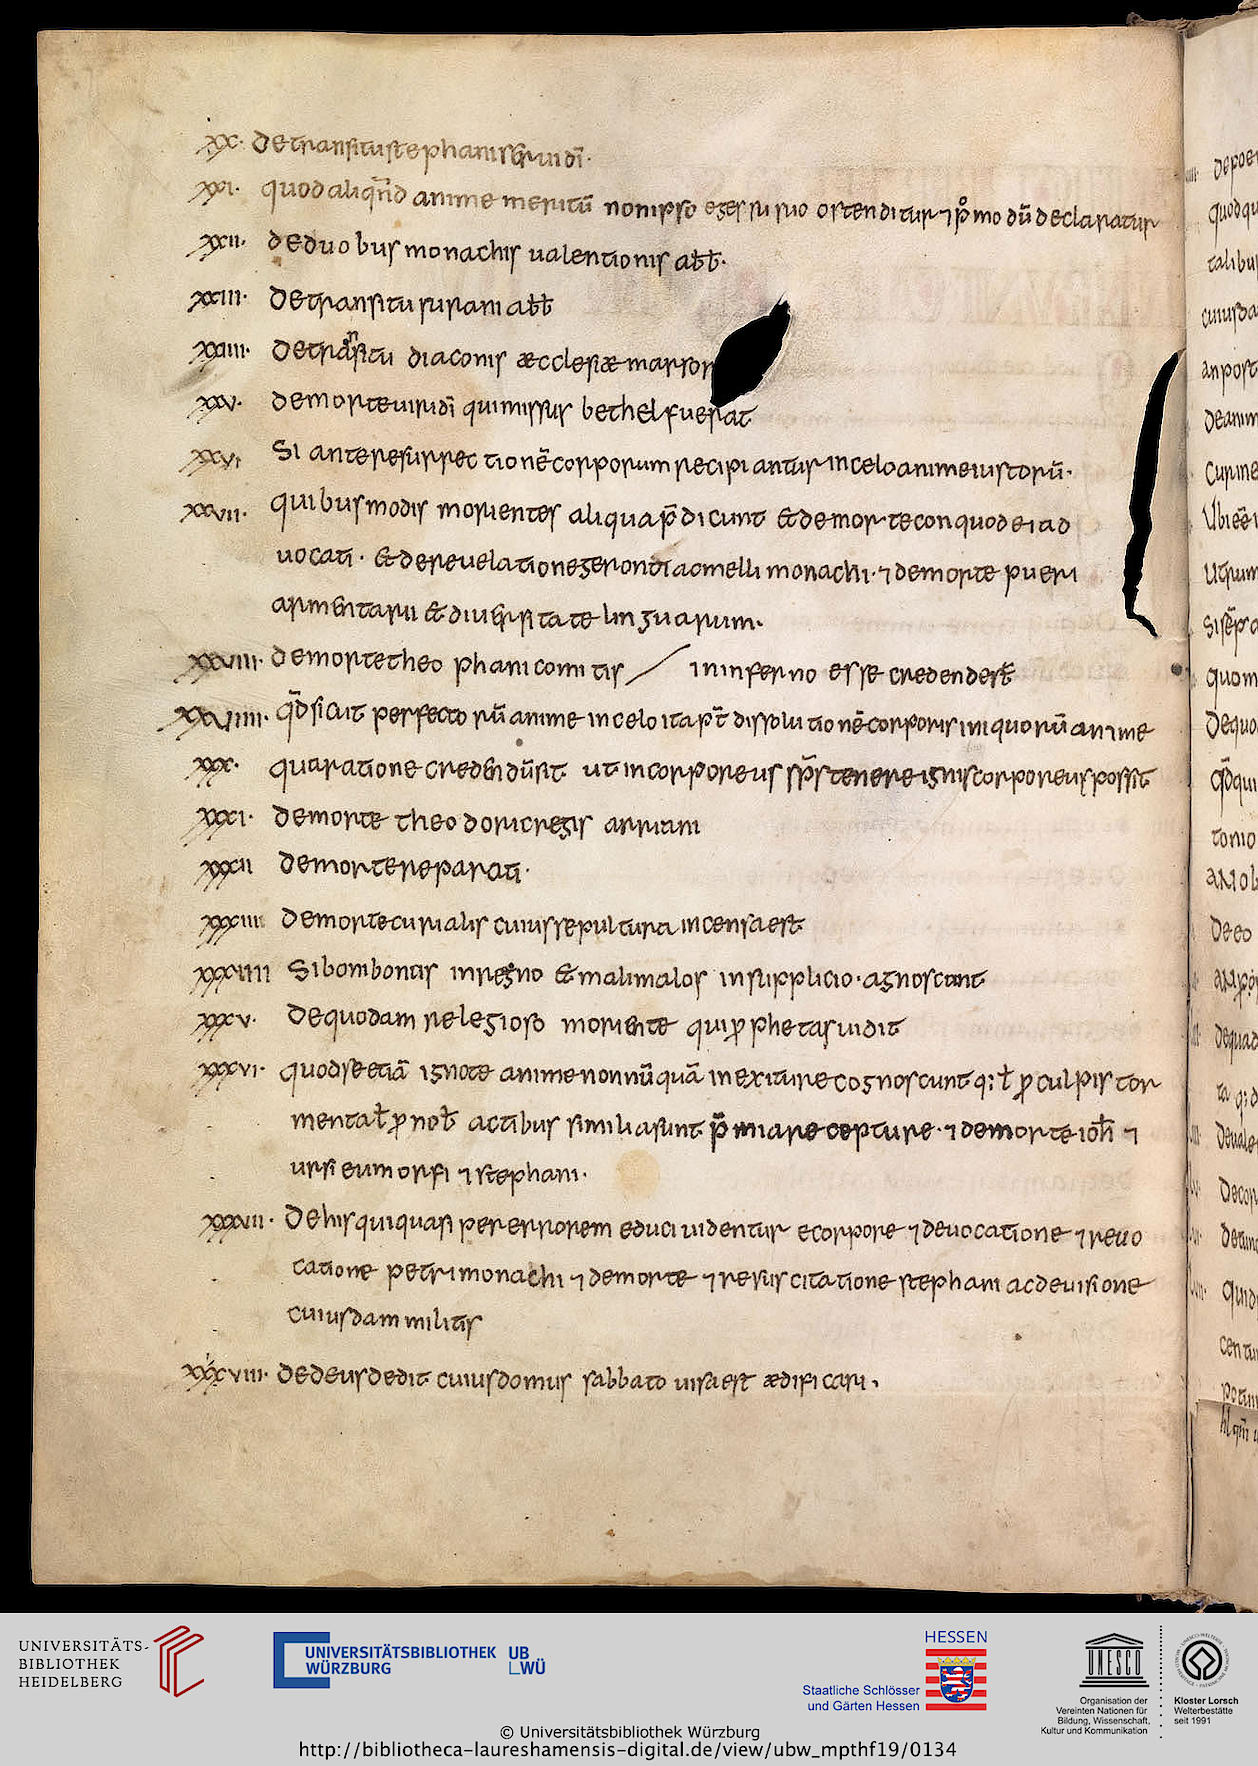 xx. de transitu stephani serui dī.
xxi. quod aliqn̄d anime meritū non ipso egressu suo ostenditur ⁊ pͦmodū declaratur
xxii. de duobus monachis ualentionis abƀ.
xxiii. de transitu surani abƀ
xxiiii. de transitu diaconis æcclesiæ marsor
xxv. de morte uiri dī qui missus bethel fuerat
xxvi si ante resurrectionē corporum recipiantur in celo anime iustorū.
xxvii. quibus modis morientes aliqua p̄dicunt & de morte conquodei ad
uocati. & de reuelatione gerontii ac melli monachi. ⁊ de morte pueri
armentarii & diuersitate linguarum.
xxviii. de morte theophani comitis / in inferno esse credendesť
xxviiii. qd̄ sicut perfectorū anime in celo ita p̄t dissolutionē corporis iniquorū anime
xxx. qua ratione credendū sit ut incorporeus sp̄s tenere ignis corporeus possit
xxxi. de morte theodorici regis arriani
xxxii de morte reparati.
xxxiii de morte curialis cuius sepultura incensa est
xxxiiii si boni bonus in regno & mali malos in supplicio. agnoscant
xxxv. de quodam relegioso moriente qui ꝓphetas uidit
xxxvi. quod se etiā ignote anime nonnūquā in exitu recognoscunt q; ł ꝓ culpis tor
menta ł ꝓ noƀ actibus similia sunt p̄miare cepture. ⁊ de morte ioħ ⁊
ursi eumorfi ⁊ stephani.
xxxvii. de his qui quasi per errorem educi uidentur e corpore ⁊ de uocatione ⁊ reuo
catione petri monachi ⁊ de morte ⁊ resuscitatione stephani ac de uisione
cuiusdam militis
xxxviii. de deusdedit cuius domus sabbato uisa est ædificari.
UNIVERSITÄTS-
BIBLIOTHEK
HEIDELBERG
UNIVERSITÄTSBIBLIOTHEK
WÜRZBURG
UB
WÜ
HESSEN
Staatliche Schlösser
und Gärten Hessen
UNESCO
Organisation der
Vereinten Nationen für
Bildung, Wissenschaft,
Kultur und Kommunikation
Kloster Lorsch
Welterbestätte
seit 1991
© Universitätsbibliothek Würzburg
http://bibliotheca-laureshamensis-digital.de/view/ubw_mpthf19/0134